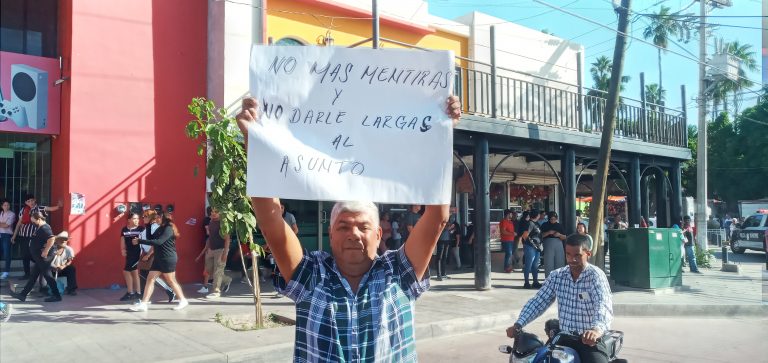 NO MAS MENTIRAS
Y
NO DARLE LARGAS
AL
ASUNTO